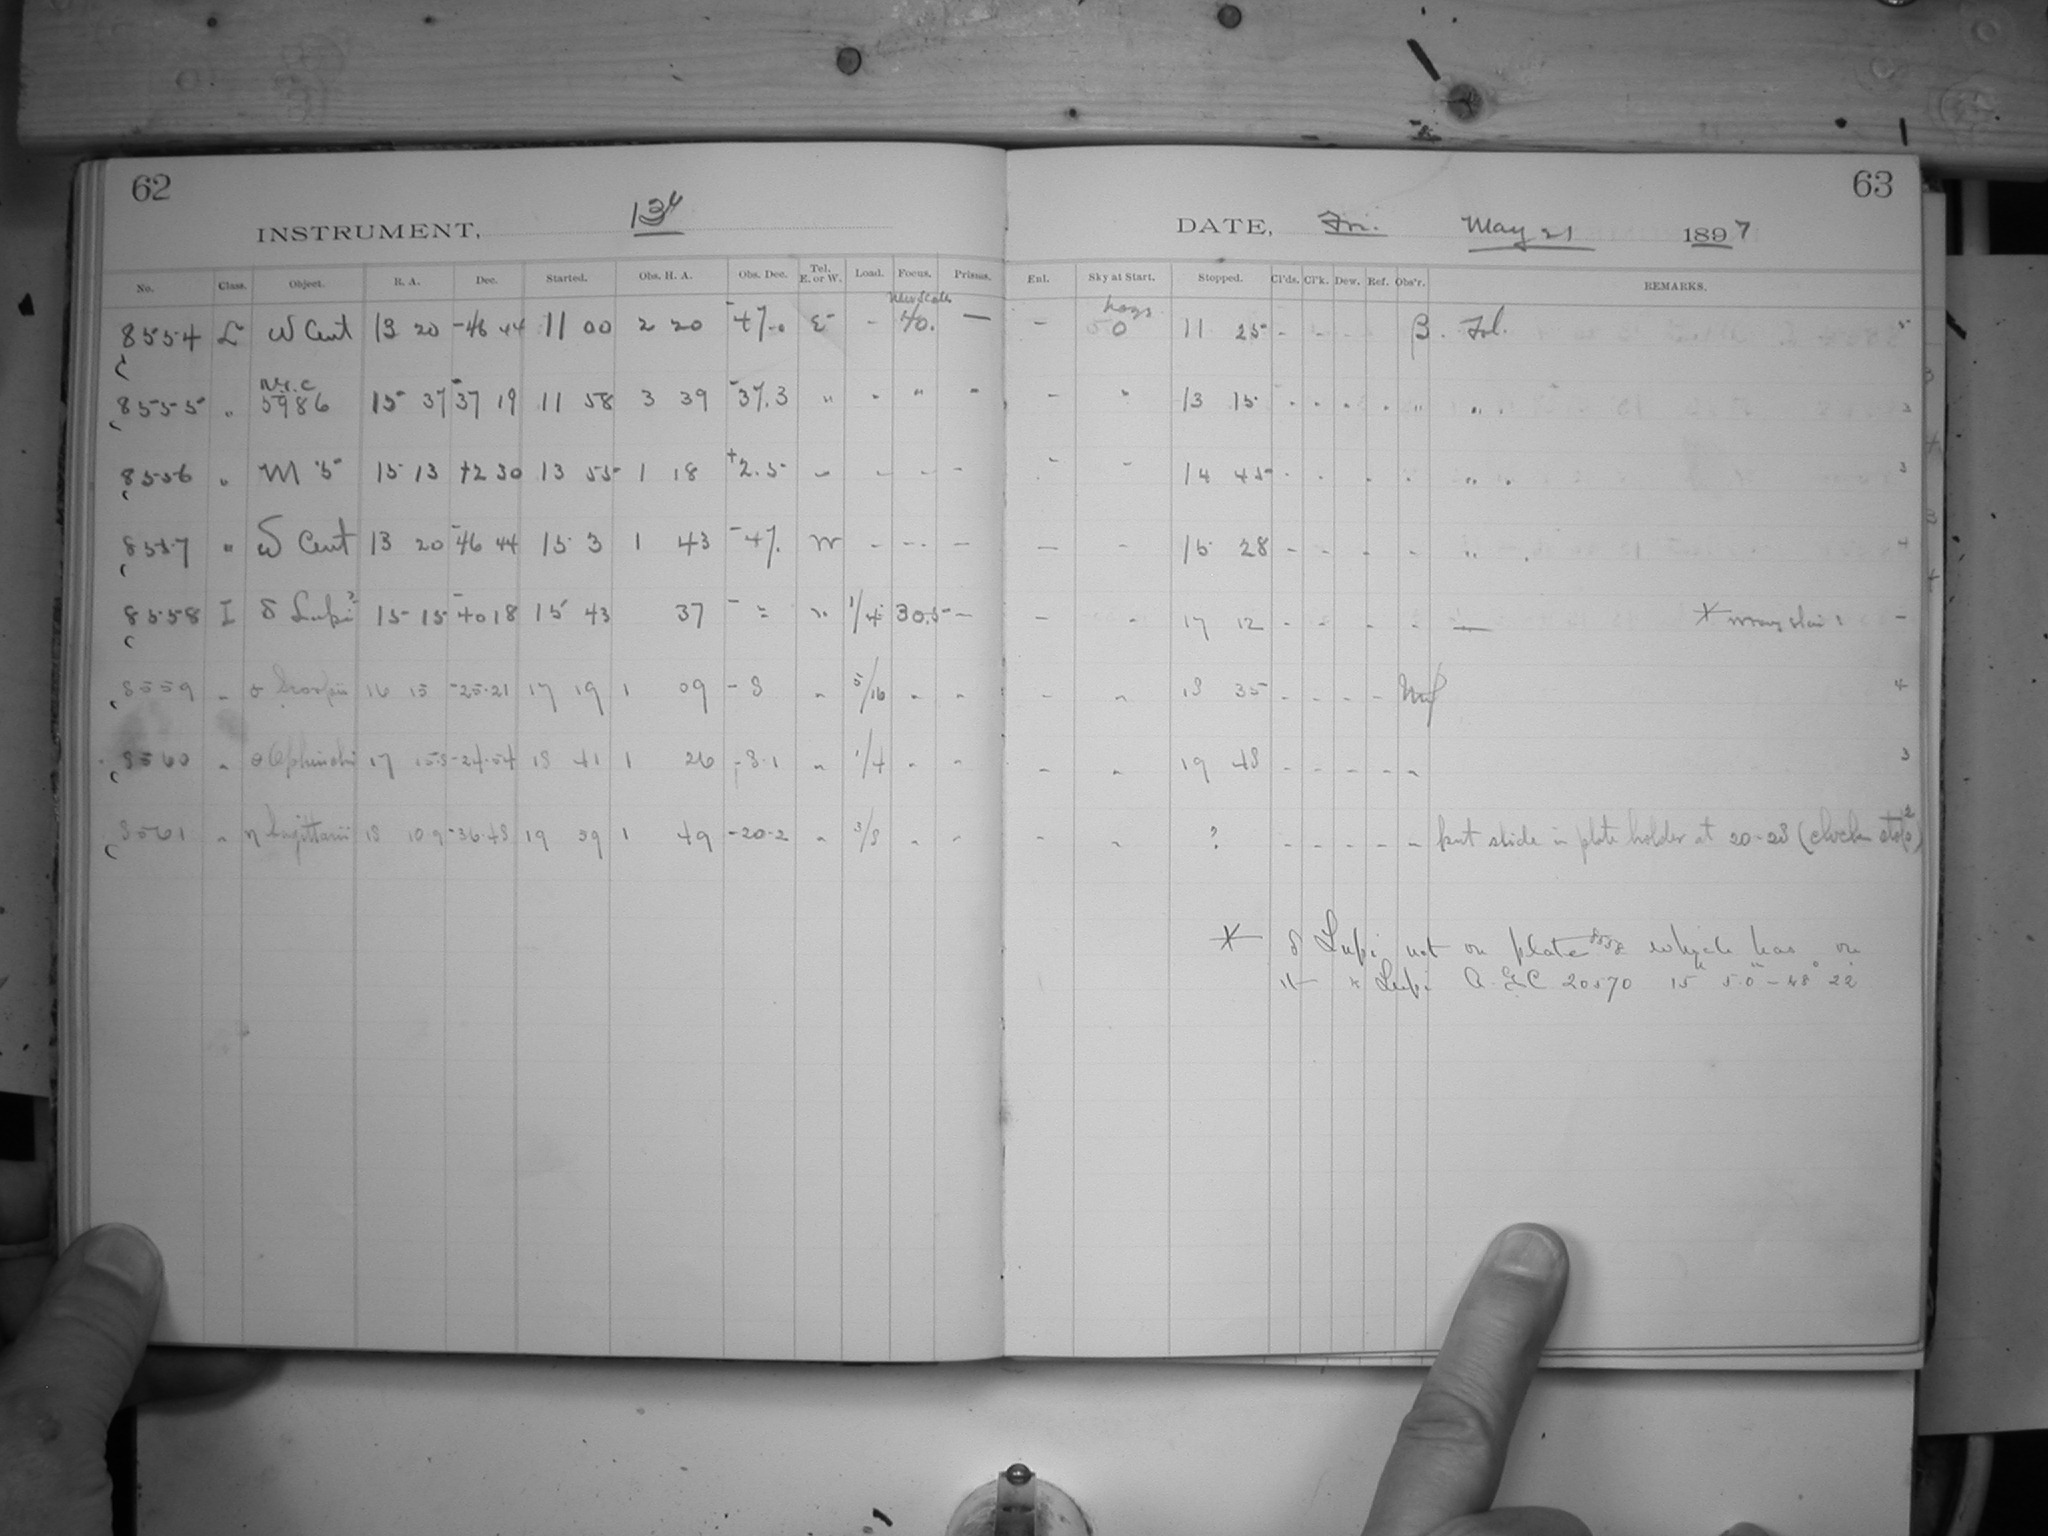 62
INSTRUMENT, 13"
No. Class. Object. R. A. Dec. Started. Obs. H. A. Obs. Dec. Tel. E. or W. Load. Focus. Prisms.
8554 L ω Cent 13 20 -46 44 11 00 2 20 -47.0 E - New Scale 40. —
8555 " N.G.C 5986 15 37 -37 19 11 58 3 39 -37.3 " - " -
8556 " M 5 15 13 +2 30 13 55 1 18 +2.5 - - - -
8557 " ω Cent 13 20 -46 44 15 3 1 43 -47. W - - —
8558 I δ Lupi 15 15 -40 18 15 43 37 - " 1/4 30.5 —
8559 " σ Scorpii 16 15 -25.21 17 19 1 09 -8 " 5/16 " "
8560 " θ Ophiuchi 17 15.8 -24.54 18 41 1 26 -8.1 " 1/4 " "
8561 " η Sagittarii 18 10 9 -36.48 19 59 1 49 -20.2 " 3/8 " "
63
DATE, Fri. May 21 1897
Enl. Sky at Start. Stopped. Cl'ds. Cl'k. Dew. Ref. Obs'r. REMARKS.
- hazy 0 11 25 - - - - B. 5
- " 13 15 - - - - " " 3
- - 14 45 - - - - " 3
— - 15 28 - - - - " 4
- " 17 12 - - - - — * wrong star? -
- " 18 35 - - - - 4
- " 19 48 - - - - " 3
- " ? - - - - - put slide in plate holder at 20-28 (clock stop) 2
* δ Lupi not on plate 8558 which has on
it κ Lupi A.G.C 20570 15h 5.0m -48° 22